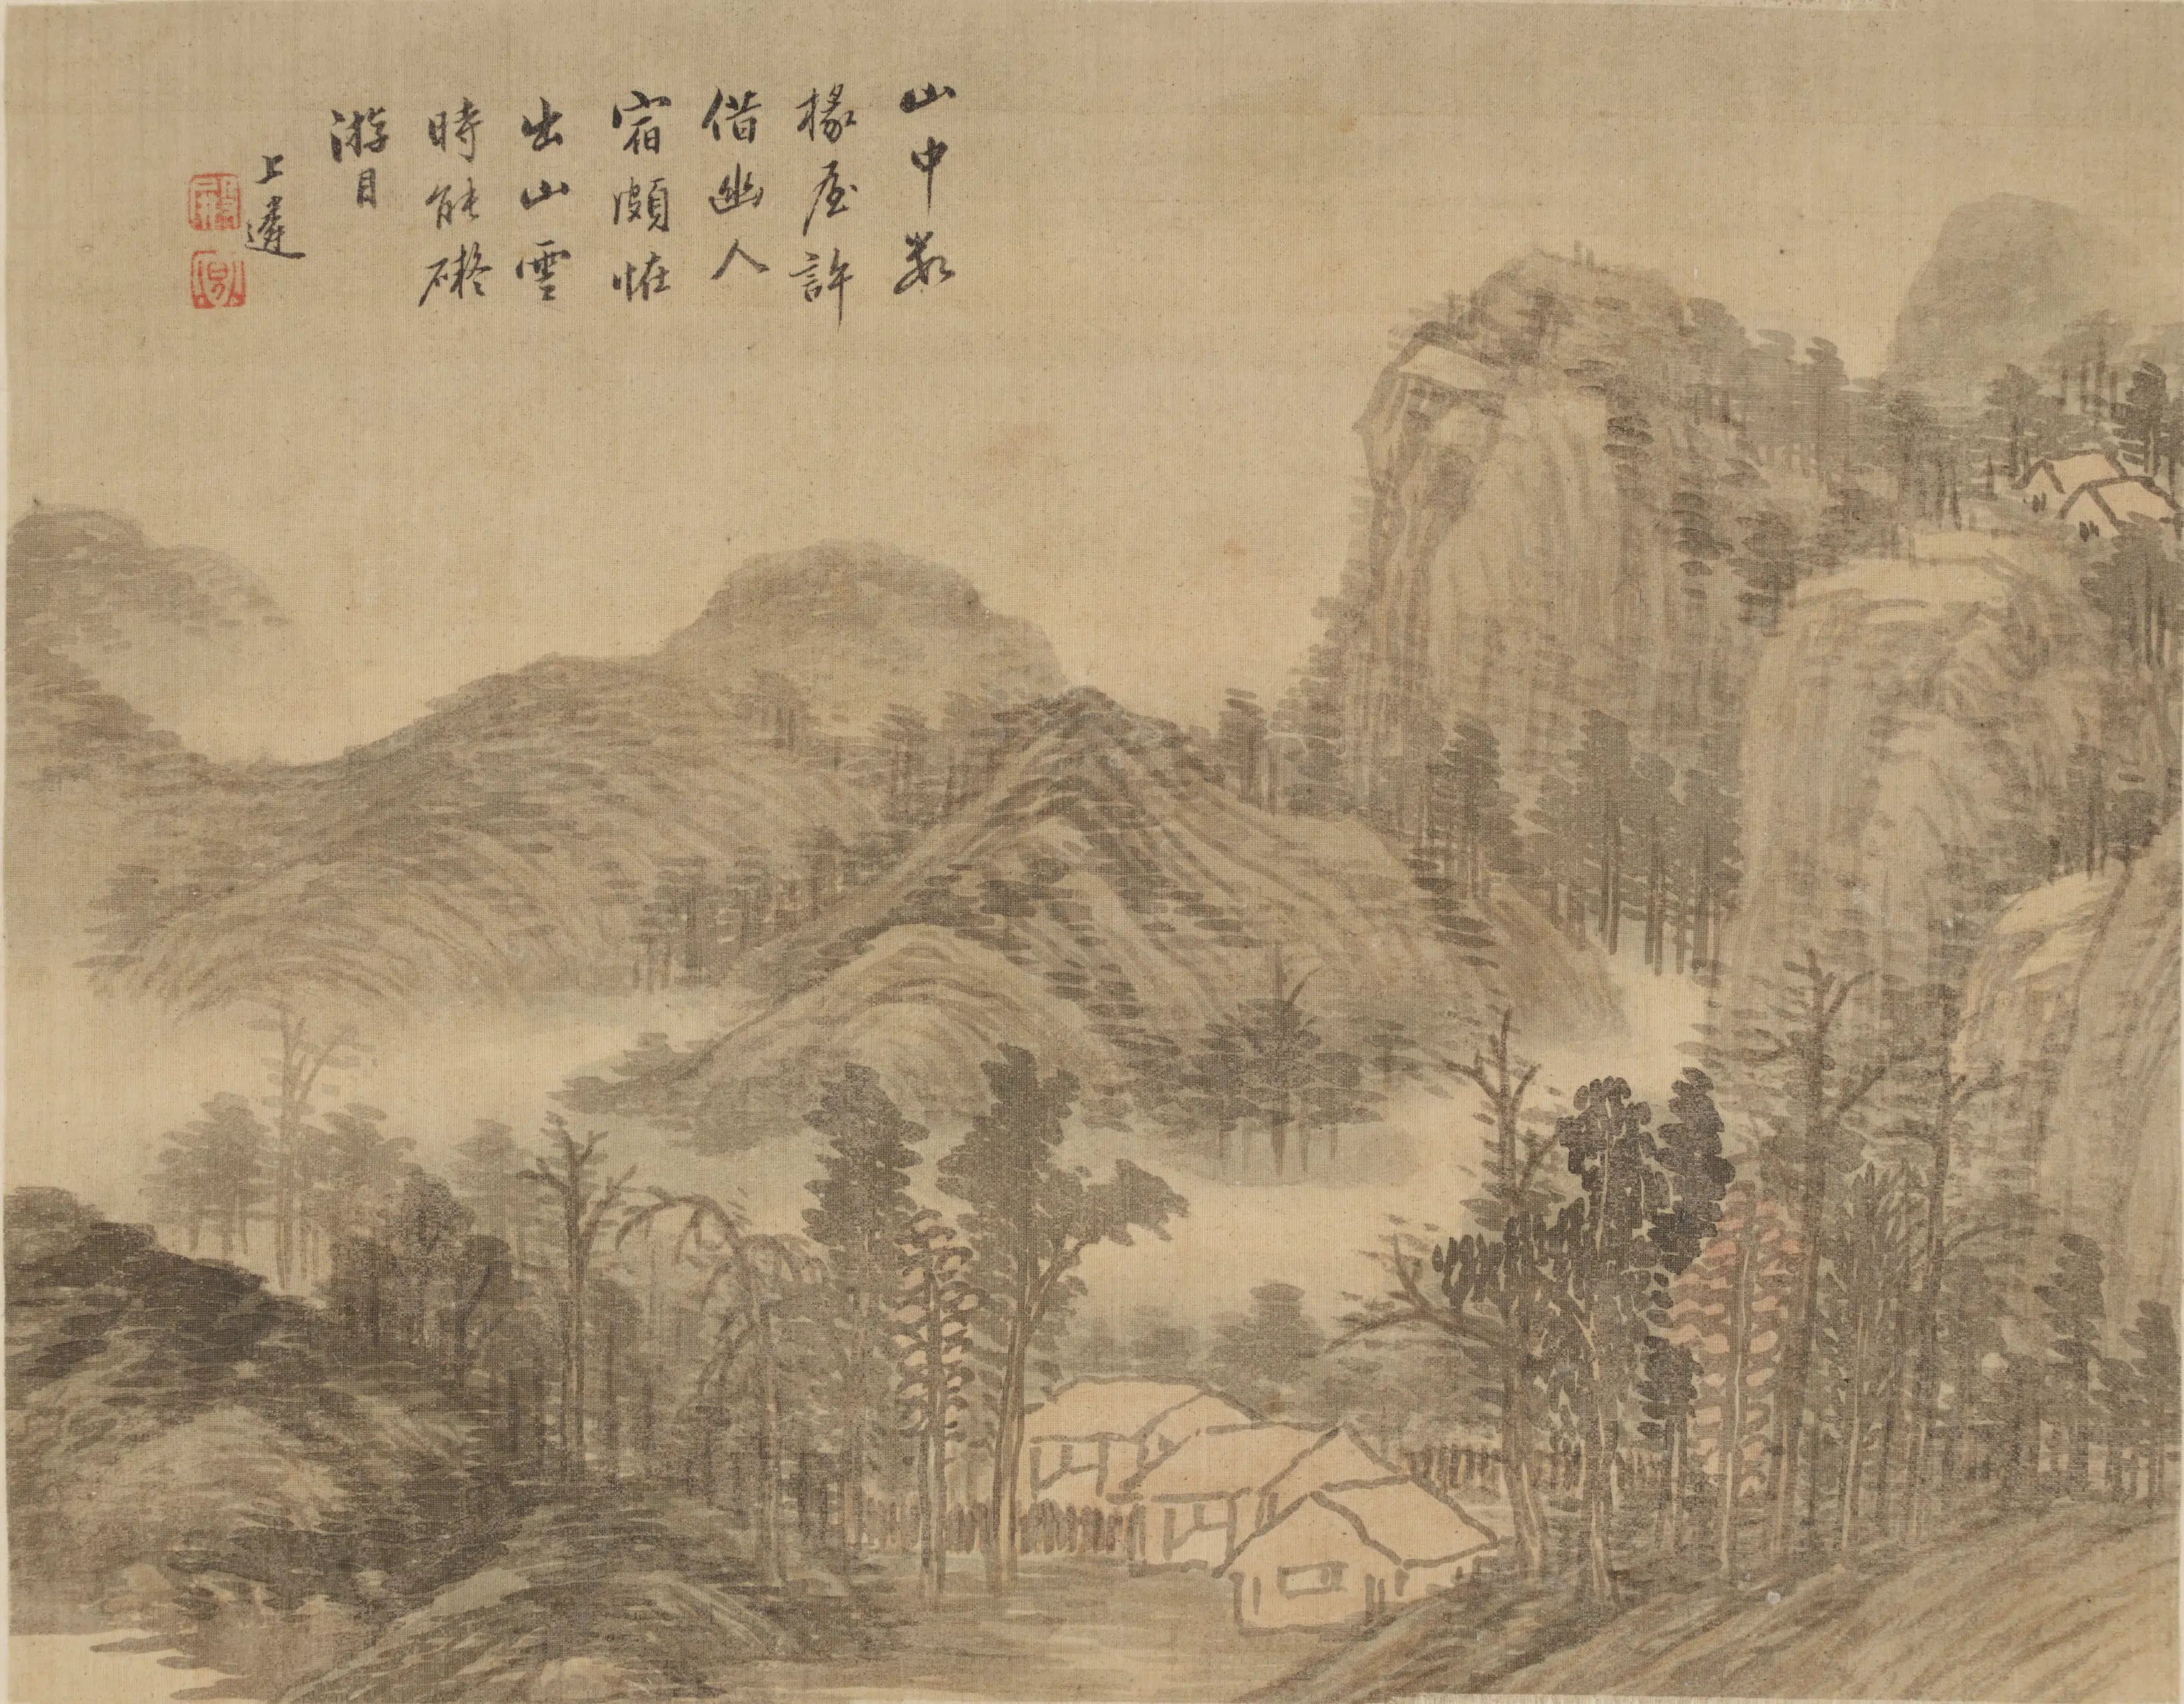 山中數
椽屋許
借幽人
宿頗恠
出山雲
時能礙
游目
上